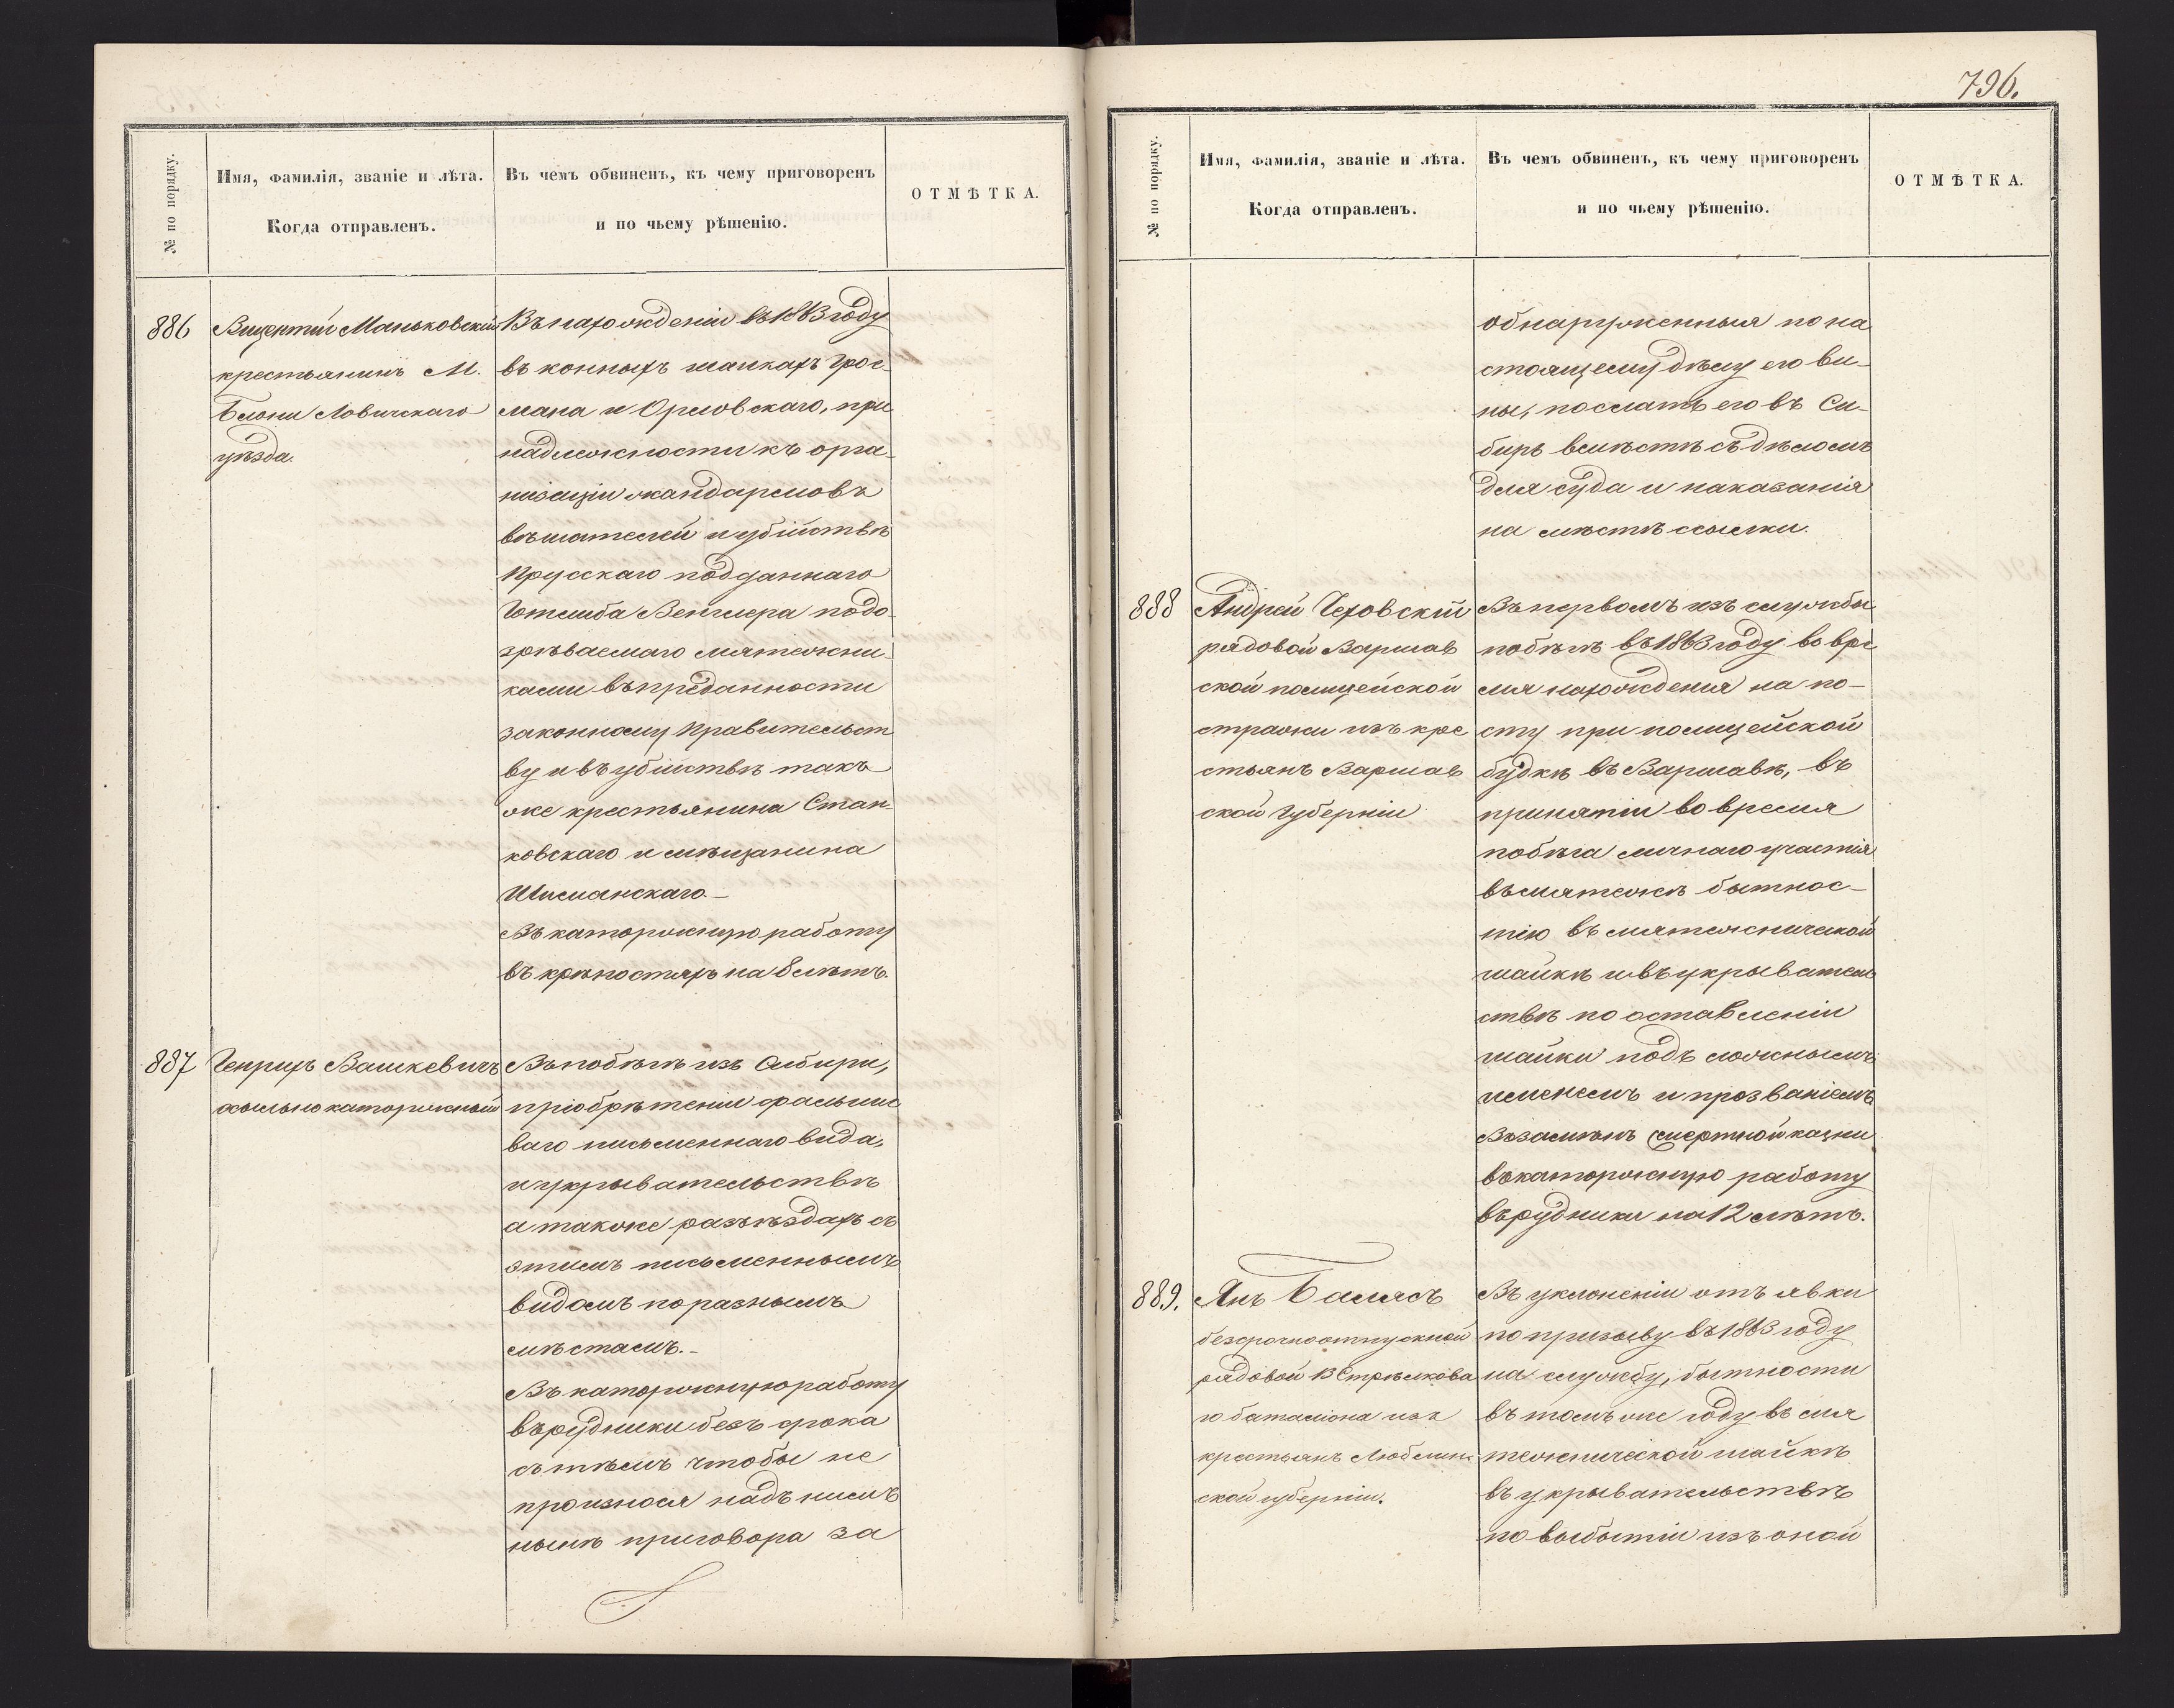 796.
№ по порядку.
Имя, фамилія, званіе и лѣта.
Когда отправленъ.
Въ чемъ обвиненъ, къ чему приговоренъ
и по чьему рѣшенію.
ОТМѢТКА.
886
Вицентій Маньковскій
крестьянинъ М.
Блони Ловичскаго
уѣзда.
Въ нахожденіи въ 1863 году
въ конныхъ шайкахъ Грос-
мана и Орловскаго, при
надлежности къ орга-
низаціи жандармовъ
вѣшателей и убійствѣ
Прусскаго подданнаго
Готлиба Венглера подо-
зрѣваемаго мятежни-
ками въ преданности
законному Правительст
ву и въ убійствѣ такъ
же крестьянина Стан-
ковскаго и мѣщанина
Шиманскаго.-
Въ каторжную работу
въ крѣпостяхъ на 8 лѣтъ.
887
Генрихъ Вашкевичъ
ссыльно каторжный
Въ побѣгѣ изъ Сибири,
пріобрѣтеніи фальши
ваго письменнаго вида,
и укрывательствѣ
а также разъѣздахъ съ
этимъ письменнымъ
видомъ по разнымъ
мѣстамъ.-
Въ каторжную работу
въ рудники безъ срока
съ тѣмъ чтобы не
произнося надъ нимъ
нынѣ приговора за
№ по порядку.
Имя, фамилія, званіе и лѣта.
Когда отправленъ.
Въ чемъ обвиненъ, къ чему приговоренъ
и по чьему рѣшенію.
ОТМѢТКА.
обнаруженныя по на
стоящему дѣлу его ви-
ны, послать его въ Си-
бирь вмѣстѣ съ дѣломъ
для суда и наказанія
на мѣстѣ ссылки.
888
Андрей Чеховскій
рядовой Варшав
ской полицейской
стражи изъ кре
стьянъ Варшав
ской Губерніи
Въ первомъ изъ службы
побѣгѣ въ 1863 году во вре
мя нахожденія на по-
сту при полицейской
будкѣ въ Варшавѣ, въ
принятіи во время
побѣга личнаго участія
въ мятежѣ бытнос-
тію въ мятежнической
шайкѣ и въ укрыватель
ствѣ по оставленіи
шайки подъ ложнымъ
именемъ и прозваніемъ
Взамѣнъ смертной казни
въ каторжную работу
въ рудники на 12 лѣтъ.
889.
Янъ Балясъ
безсрочноотпускной
рядовой 13 Стрѣлкова
го баталіона изъ
крестьянъ Люблин
ской губерніи.
Въ уклоненіи отъ явки
по призыву въ 1863 году
на службу, бытности
въ томъ же году въ мя
тежнической шайкѣ
въ укрывательствѣ
по выбытіи изъ оной